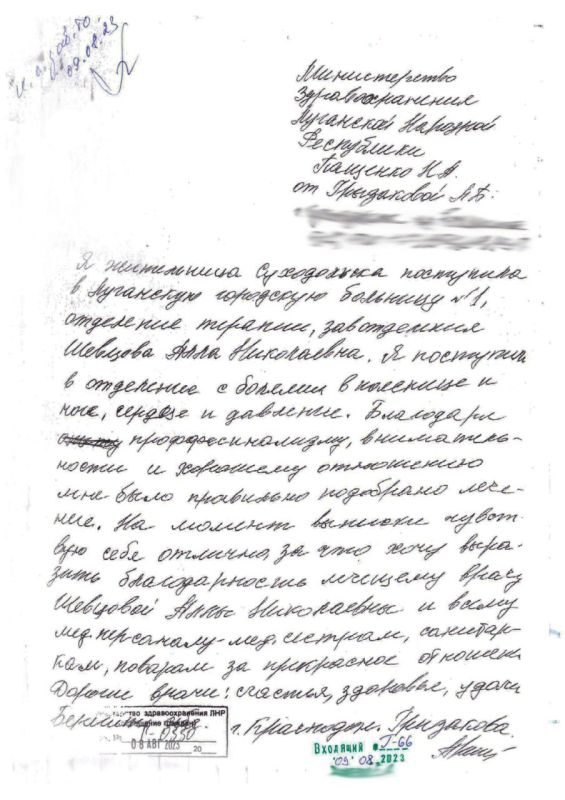 09.08.23
Министерство
Здравоохранения
Луганской Народной
Республики
Пащенко Н.А.
от Грызаковой А.В.
Я жительница Суходольска поступила
в Луганскую городскую больницу №1,
отделение терапии, завотделения
Шевцова Анна Николаевна. Я поступила
в отделение с болями в пояснице и
ноге, сердце и давление. Благодаря
проффесинализму, вниматель-
ности и хорошему отношению
мне было правильно подобрано лече-
ние. На момент выписки чувст
вую себя отлично, за что хочу выра-
зить благодарность лечащему врачу
Шевцовой Анны Николаевны и всему
мед. персоналу - мед. сестрам, санитар-
кам, поварам за прекрасное отношен
Дорогие врачи: счастья, здоровья, удачи
здравоохранения ЛНР
08 АВГ 2023 20
г. Краснодон. Грызакова.
Входящий № Г-66
"09" 08.2023